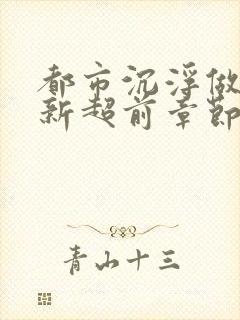 都市沉浮做
新超前章节
青山十三